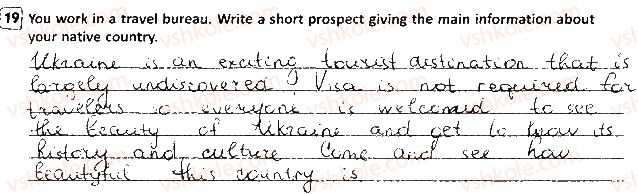 19 You work in a travel bureau. Write a short prospect giving the main information about
your native country.
Ukraine is an exciting tourist distination that is
largely undiscovered! Visa is not required for
travelers so everyone is welcomed to see
the beauty of Ukraine and get to know its
history and culture Come and see how
beautyful this country is